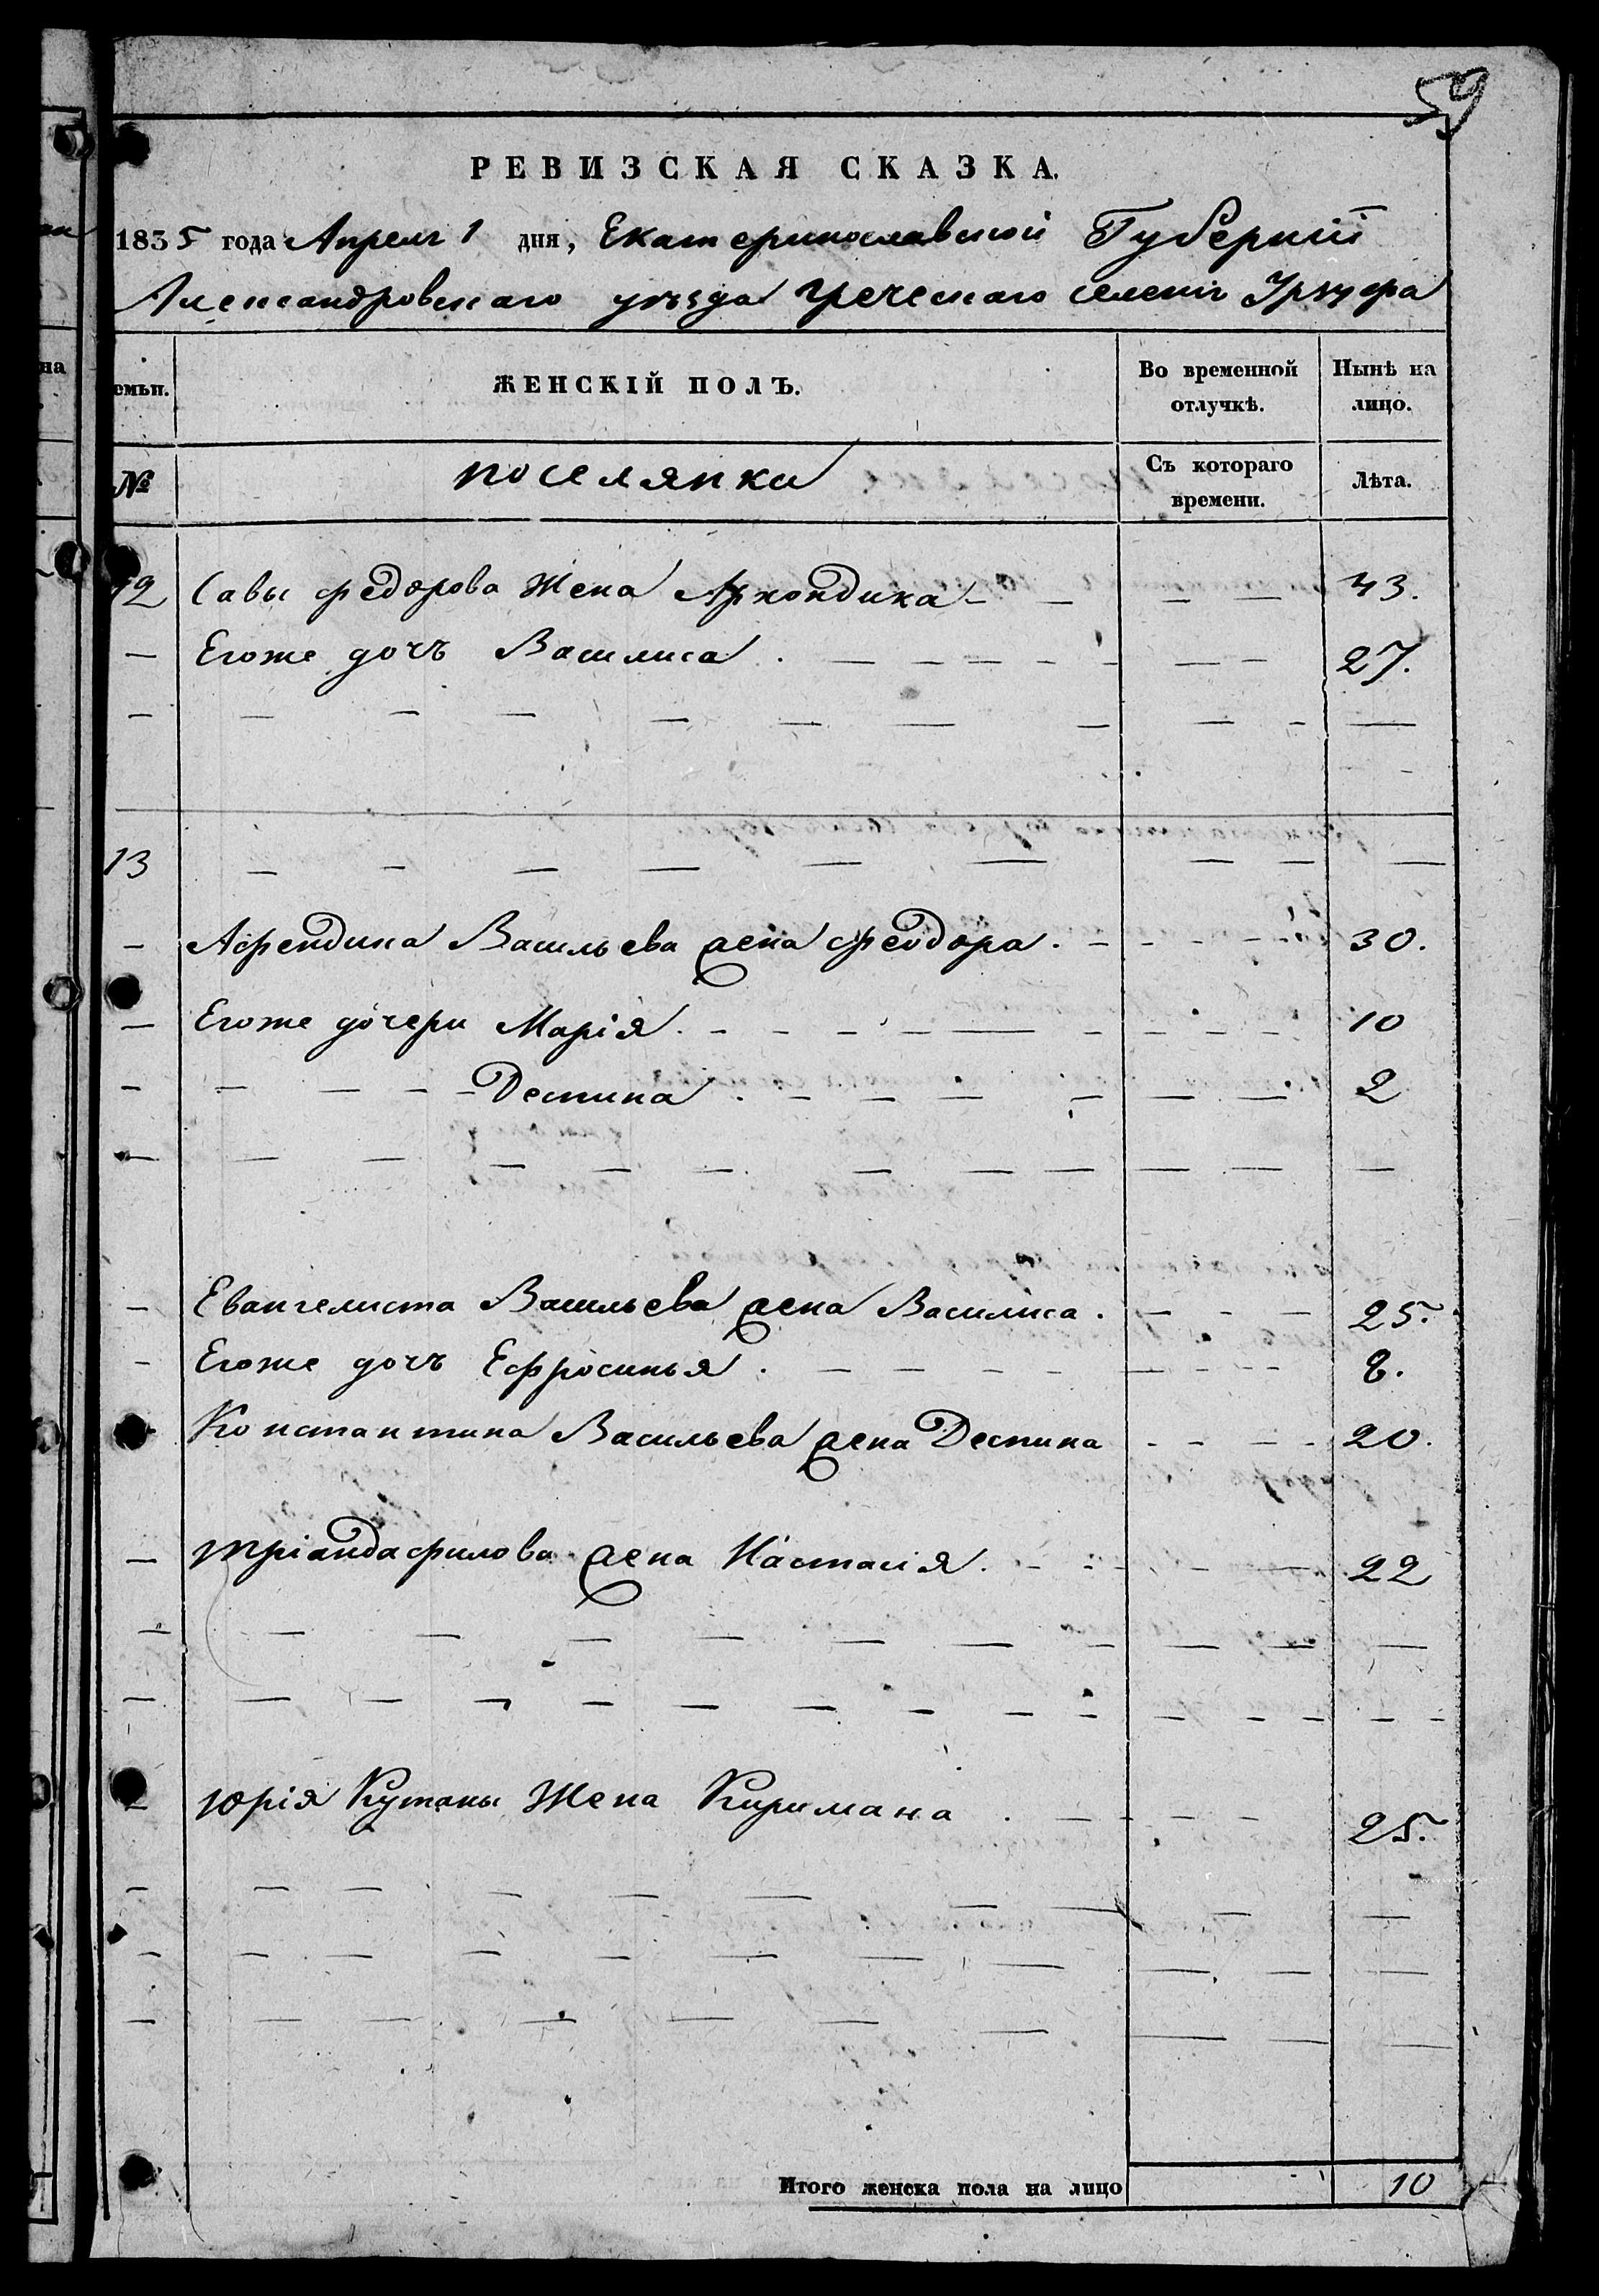 59
РЕВИЗСКАЯ СКАЗКА.
1835 года Апреля 1 дня, Екатеринославской Губерніи
Александровскаго уѣзда Греческаго селенія Урзуфа
семьи. ЖЕНСКІЙ ПОЛЪ. Во временной отлучкѣ. Нынѣ на лицо.
№ поселянки Съ котораго времени. Лѣта.
12 Савы Федорова Жена Архондика — — — — 43.
— Егоже дочь Василиса . — — — — — — — 27.
— — — — — — — — — — —
13 — — — — — — — — —
— Афендика Васильева жена Феодора . — — — — 30.
— Егоже дочери Марія . — — — — — — — — — 10
— — — — — Деспина . — — — — — — 2
— — — — — — — — — — — —
— Евангелиста Васильева жена Василиса . — — — 25.
— Егоже дочь Ефросинья . — — — — — — — 8.
Константина Васильева жена Деспина — — — — 20.
— Тріандафилова жена Настасія . — — — — 22
— — — — — — — — — — — —
— — — — — — — — — — — — — — —
— Юрія Кутаны Жена Киримана . — — — — 25.
— — — — — — — — — —
— — — — — — — — — — —
— — — — — — — — — —
Итого женска пола на лицо 10